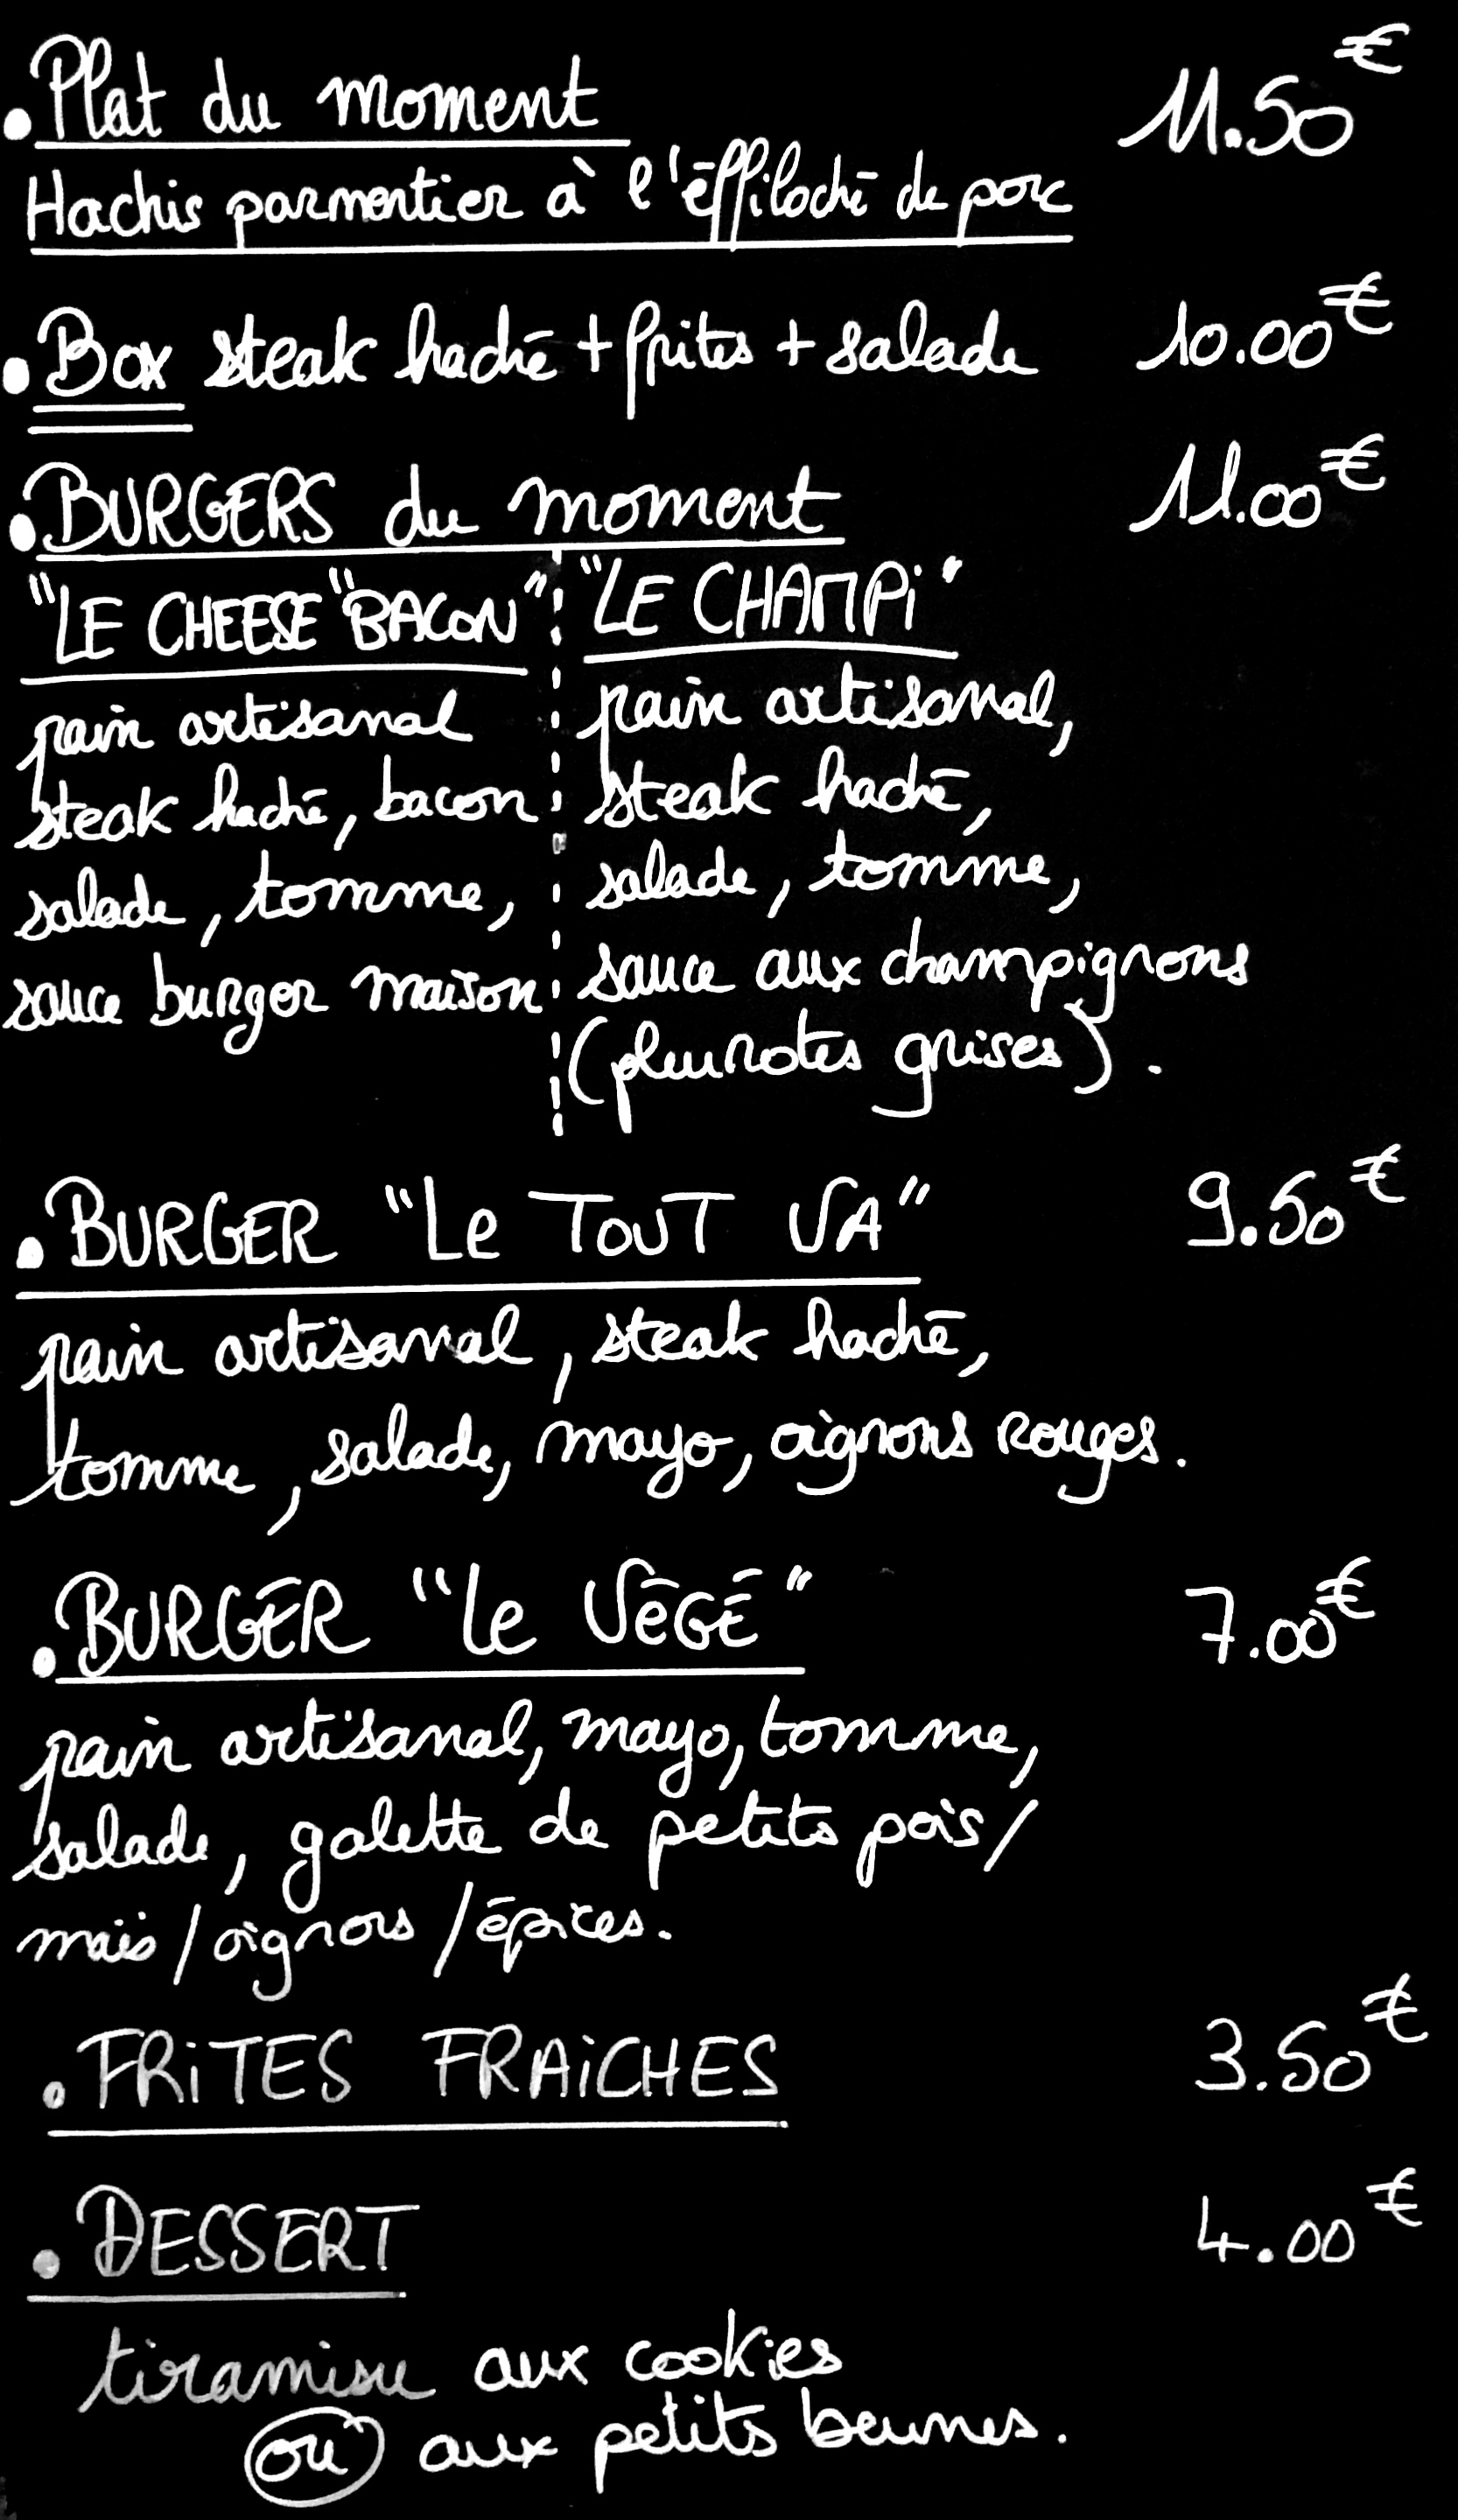 • Plat du moment 11.50€
Hachis parmentier à l'éffiloché de porc
• Box steak haché + frites + salade 10.00€
• BURGERS du moment 11.00€
"LE CHEESE "BACON"
pain artisanal
steak haché, bacon
salade, tomme,
sauce burger maison
"LE CHAMPi"
pain artisanal,
steak haché,
salade, tomme,
sauce aux champignons
(pleurotes grises).
• BURGER "Le TOUT VA" 9.50€
pain artisanal, steak haché,
tomme, salade, mayo, oignons rouges.
• BURGER "Le VÉGÉ" 7.00€
pain artisanal, mayo, tomme,
salade, galette de petits pois/
maïs/oignons/épices.
• FRiTES FRAiCHES 3.50€
• DESSERT 4.00€
tiramisu aux cookies
où aux petits beurres.